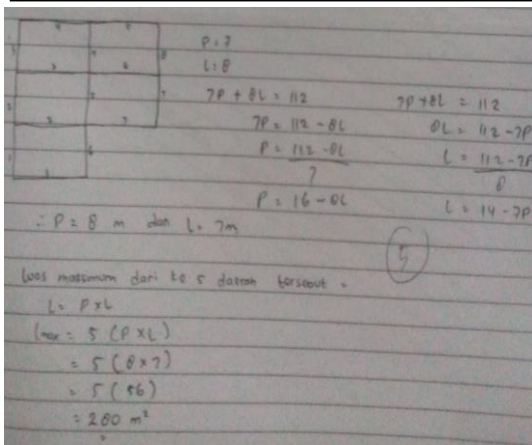 P = 7
L = 8
7P + 8L = 112
7P = 112 - 8L
P = 112 - 8L
7
P = 16 - 8L
7P + 8L = 112
8L = 112 - 7P
L = 112 - 7P
8
L = 14 - 7P
∴ P = 8 m dan L = 7m
5
Luas maksimum dari ke 5 daerah tersebut =
L = P x L
Lmax = 5 (P x L)
= 5 (8 x 7)
= 5 (56)
= 280 m²